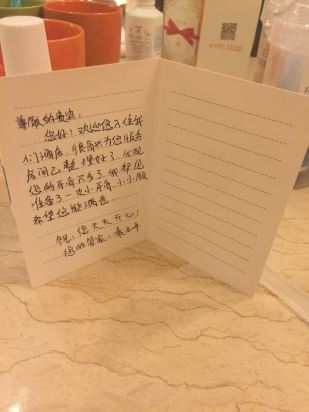 尊敬的贵宾:
您好!欢迎您入住我
们酒店,很高兴为您服务,
房间已整理好了,发现
您的牙膏不多了,我帮您
准备了一支小牙膏,小小服
希望您能满意.
祝:您天天开心!
您的管家: